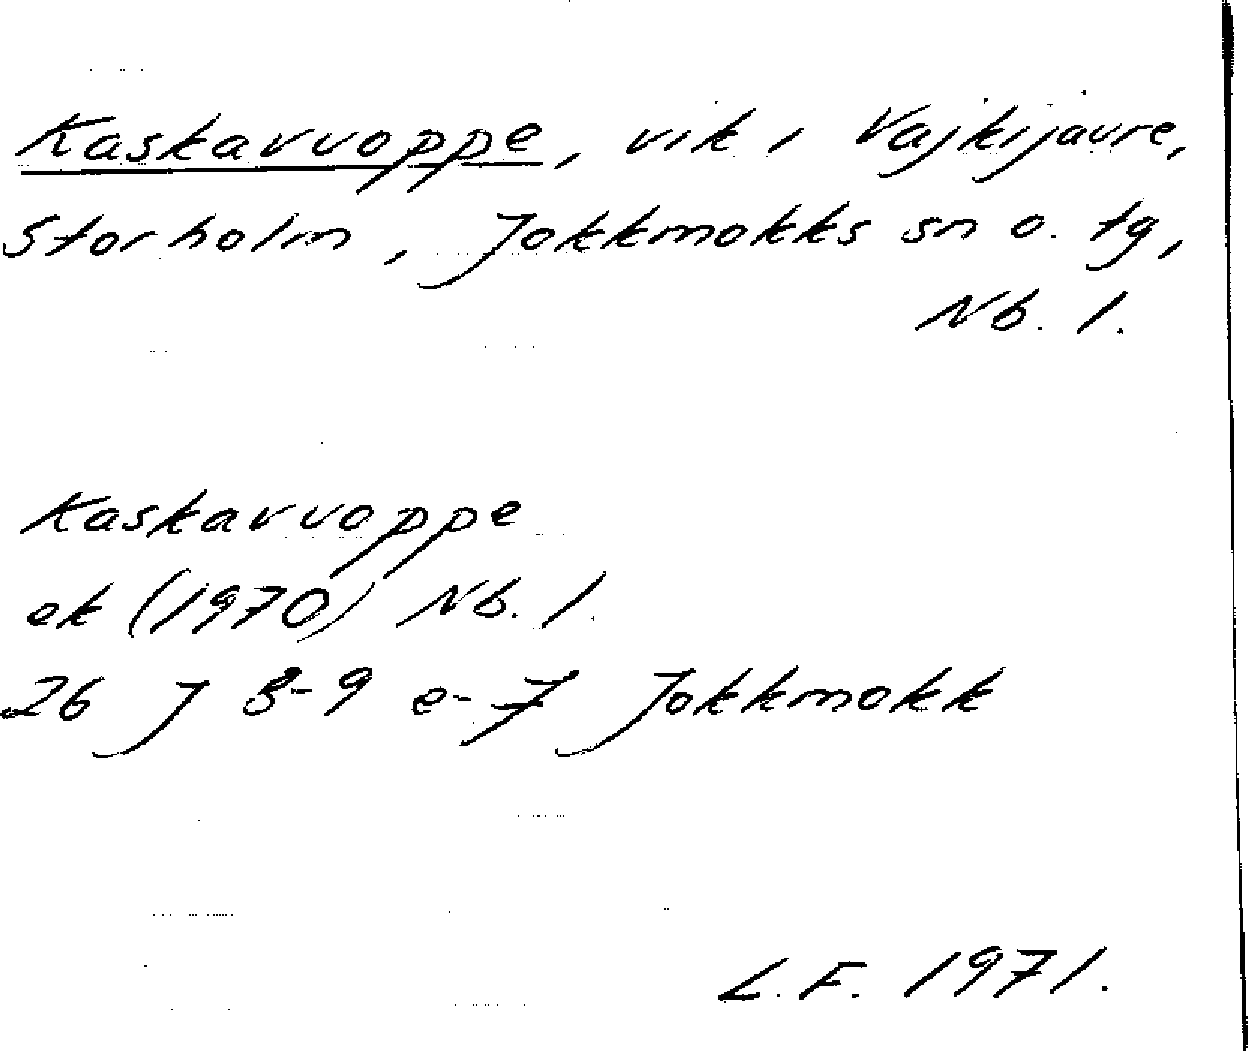 Kaskavuoppe, vik i Vajkijaure,
Storholm, Jokkmokks sn o. tg,
Nb. l.
Kaskavuoppe
ek (1970) Nb. l.
26 J 8-9 e-f Jokkmokk
L.F. 1971.